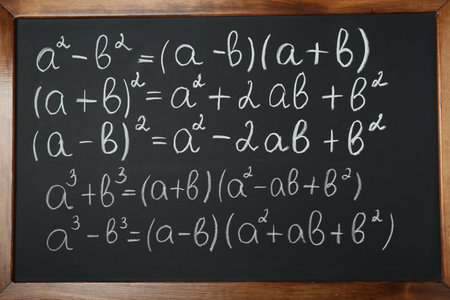 a² - b² = (a - b)(a + b)
(a + b)² = a² + 2ab + b²
(a - b)² = a² - 2ab + b²
a³ + b³ = (a + b)(a² - ab + b²)
a³ - b³ = (a - b)(a² + ab + b²)